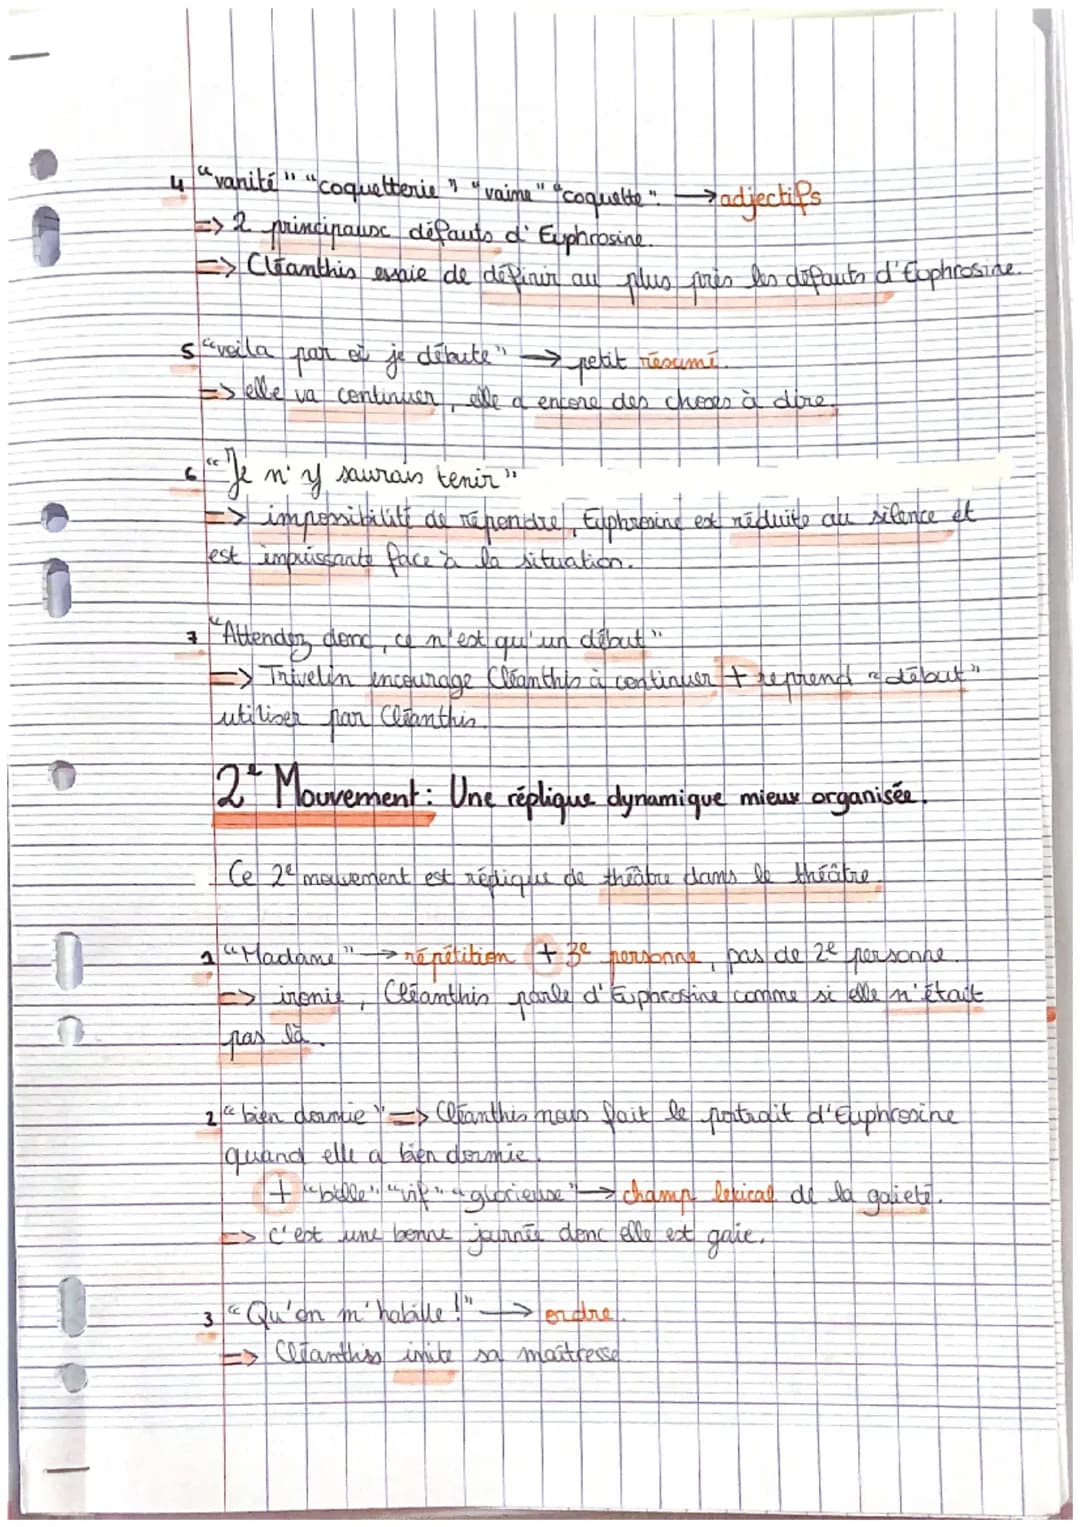 4 "vanité" "coquetterie" "vaine" "coquette". → adjectifs
=> 2 principaux défauts d'Euphrosine.
=> Cléanthis essaie de définir au plus près les défauts d'Euphrosine.
5 "voila par où je débute" → petit résumé.
=> elle va continuer, elle a encore des choses à dire.
6 "Je n'y saurais tenir"
=> impossibilité de répondre, Euphrosine est réduite au silence et
est impuissante face à la situation.
7 "Attendez donc, ce n'est qu'un début"
=> Trivelin encourage Cléanthis à continuer + reprend "début"
utiliser par Cléanthis.
2e Mouvement : Une réplique dynamique mieux organisée.
Ce 2e mouvement est réplique de théâtre dans le théâtre.
1 "Madame" → répétition + 3e personne, pas de 2e personne.
=> ironie, Cléanthis parle d'Euphrosine comme si elle n'était
pas là.
2 "bien dormie" => Cléanthis nous fait le portrait d'Euphrosine
quand elle a bien dormie.
+ "belle" "vif" "glorieuse" → champ lexical de la gaieté.
=> C'est une bonne journée donc elle est gaie.
3 "Qu'on m'habille !" → ordre.
=> Cléanthis imite sa maîtresse